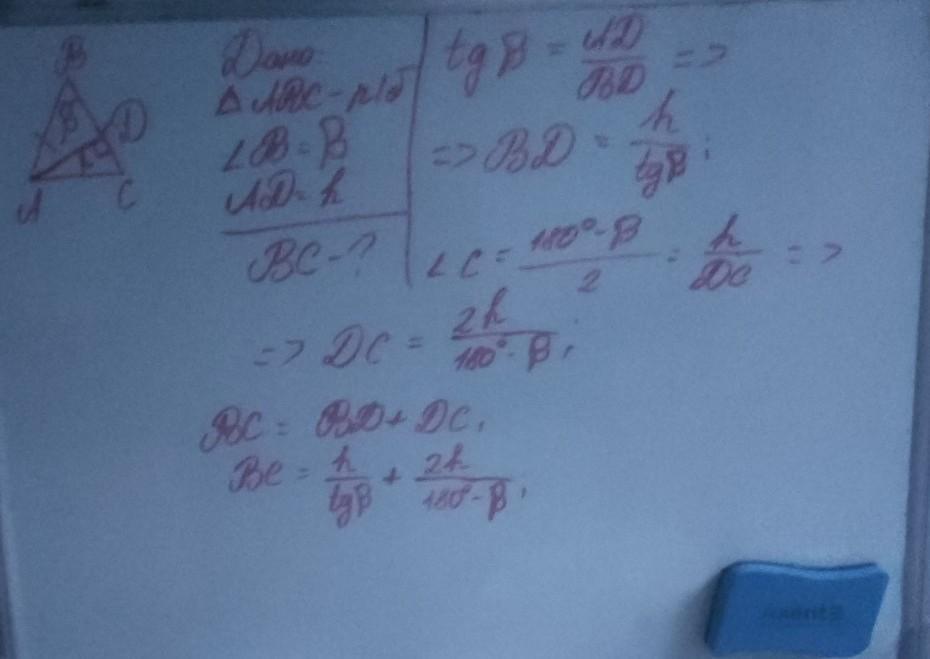 B
β
D
h
A
C
Дано:
△ABC - р/б
∠B = β
AD = h
BC - ?
tg β = AD/BD =>
=> BD = h/tgβ;
∠C = 180° - β/2 = h/DC =>
=> DC = 2h/180° - β;
BC = BD + DC,
BC = h/tgβ + 2h/180° - β,